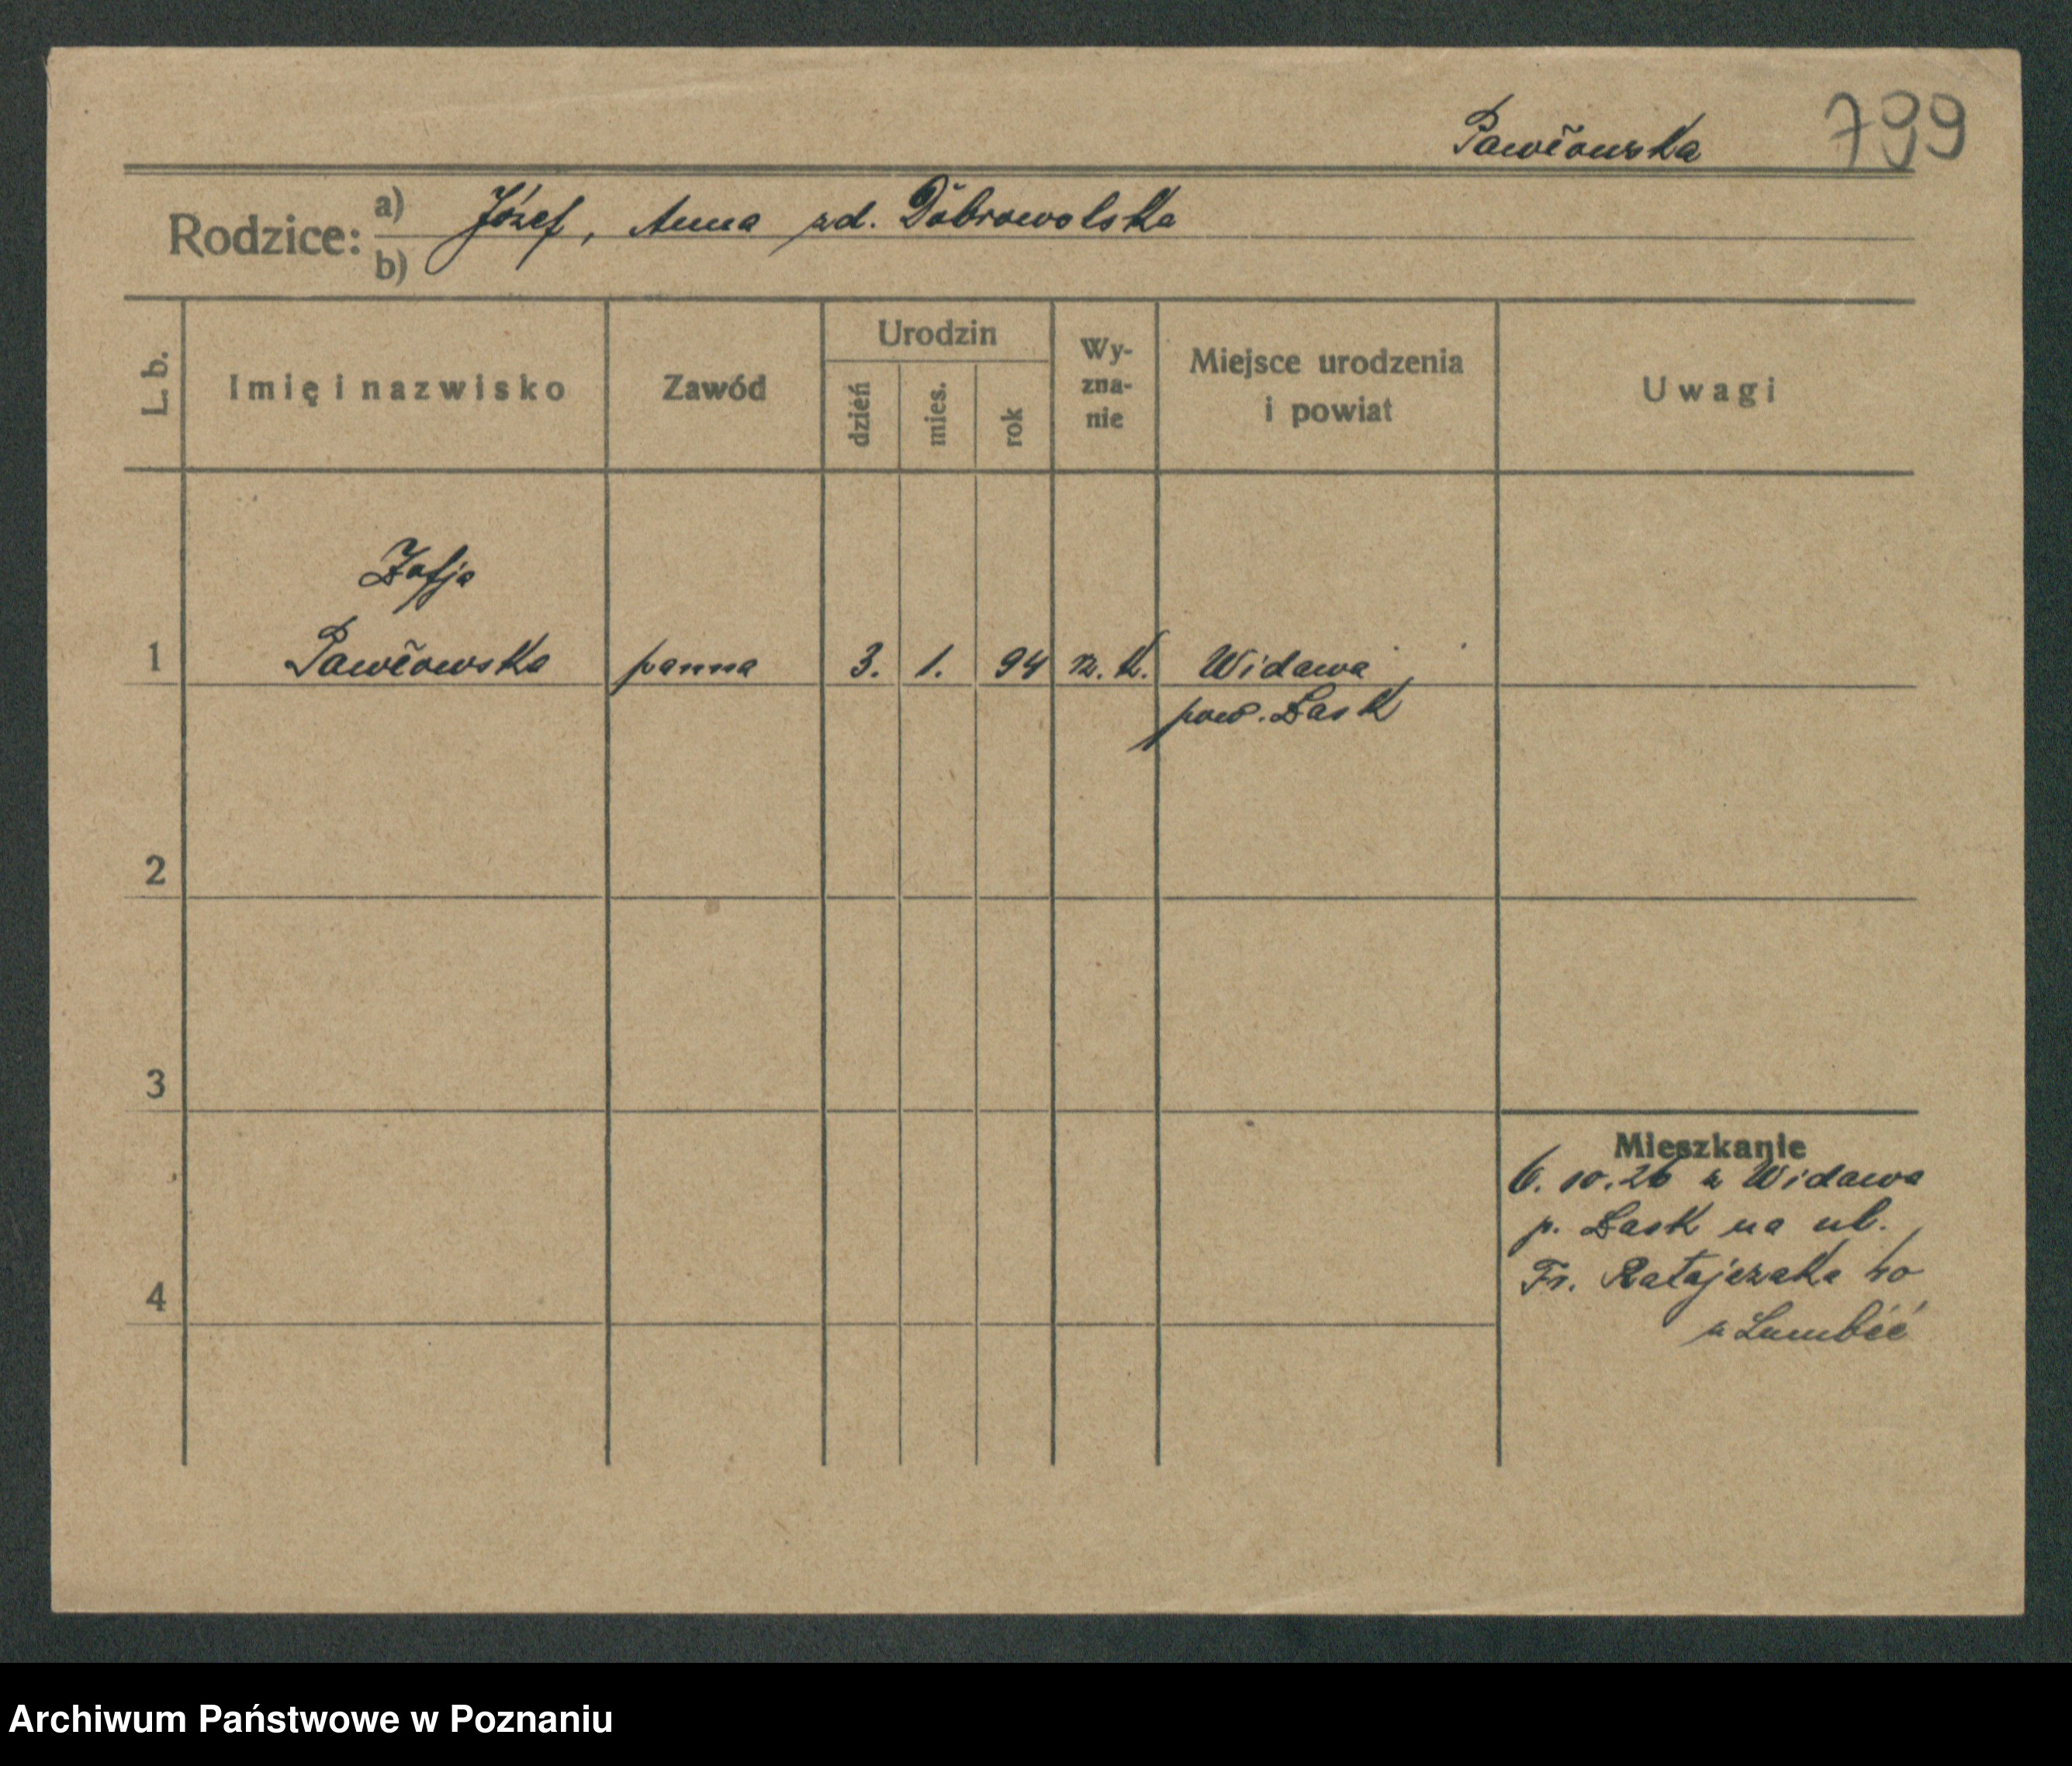 Pawłowska 799
Rodzice: a) Józef, Anna zd. Dobrowolska
b)
L. b.
Imię i nazwisko
Zawód
Urodzin
dzień
mies.
rok
Wy-
zna-
nie
Miejsce urodzenia
i powiat
Uwagi
Zofja
1 Pawłowska panna 3. 1. 94 rz. k. Widawa
pow. Łask
2
3
4
Mieszkanie
6. 10. 26 z Widawa
p. Łask na ul.
Fr. Ratajczaka 40
u
Archiwum Państwowe w Poznaniu